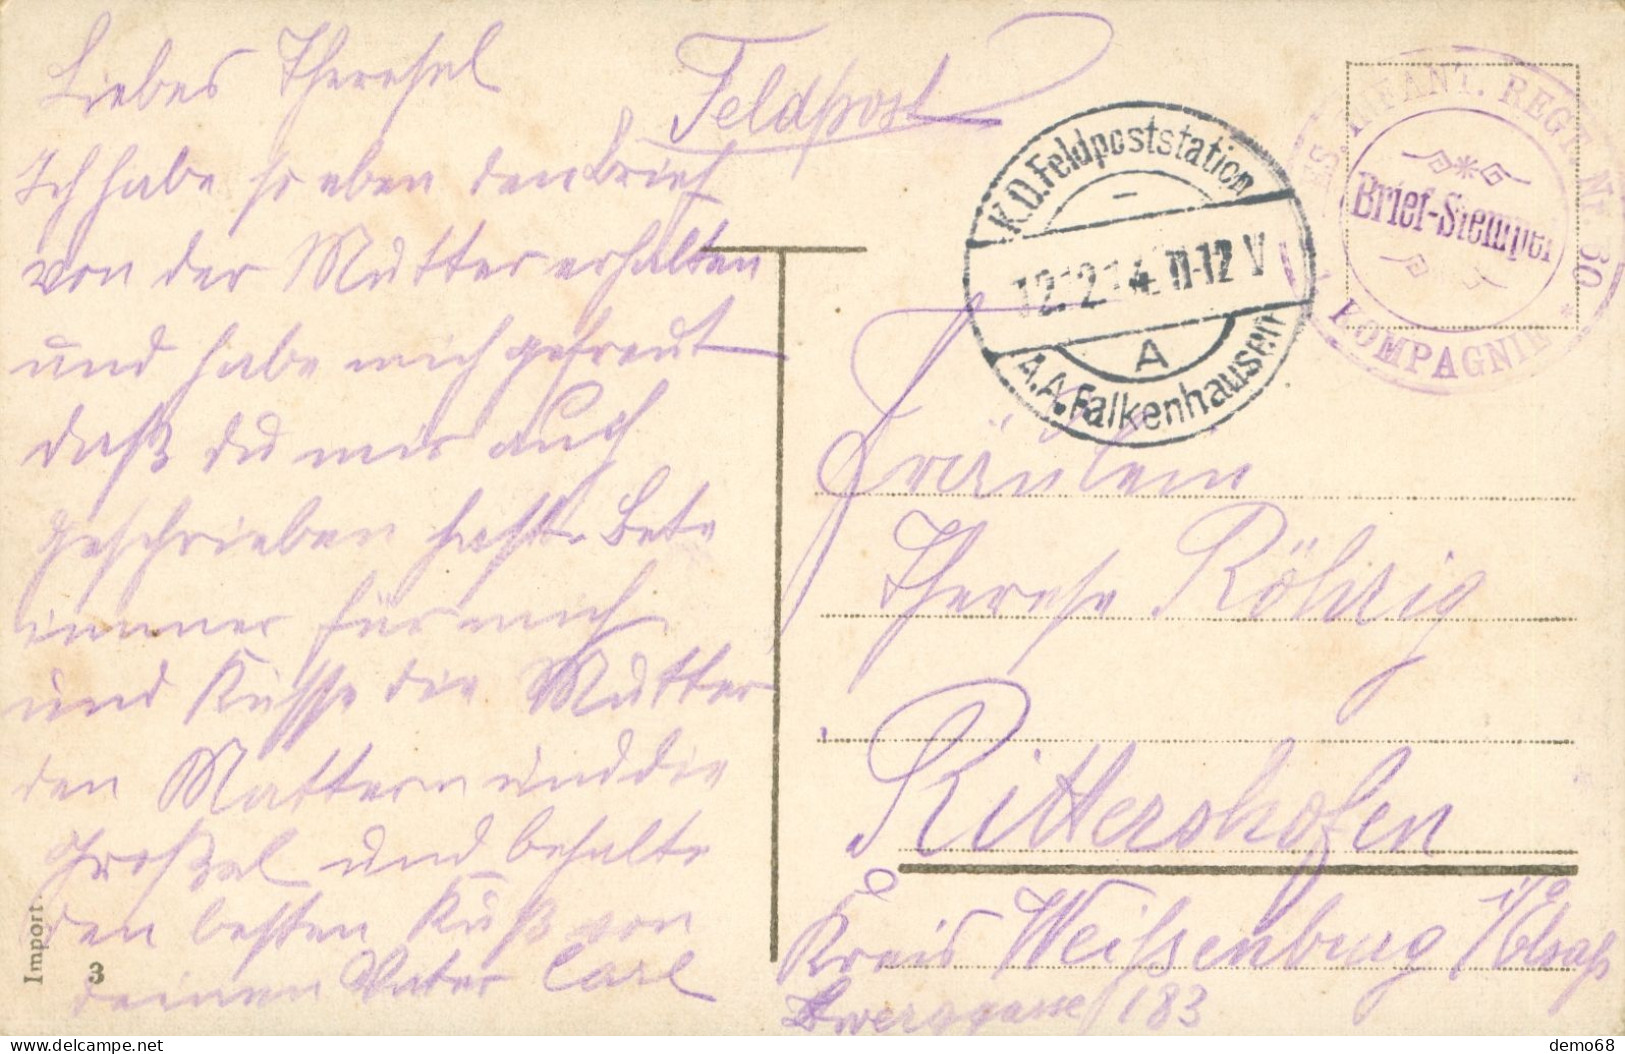 Liebes Theresel
Ich habe so eben den Brief
von der Mutter erhalten
und habe mich gefreut
daß du mir auch
geschrieben hast. Bete
immer für mich
und Küsse die Mutter
den Mattern und die
Großel und behalte
den besten Kuß von
deinen Vater Carl
Feldpost
K.D. Feldpoststation
12.12.14. 11-12 V
A
A.A. Falkenhausen
ES. INFANT. REGT. NR. 80 *
Brief-Stempel
KOMPAGNIE
Fräulein
Therese Röhrig
Rittershofen
Kreis Weißenburg i/Elsaß
183
Import.
3
delcampe.net
demo68